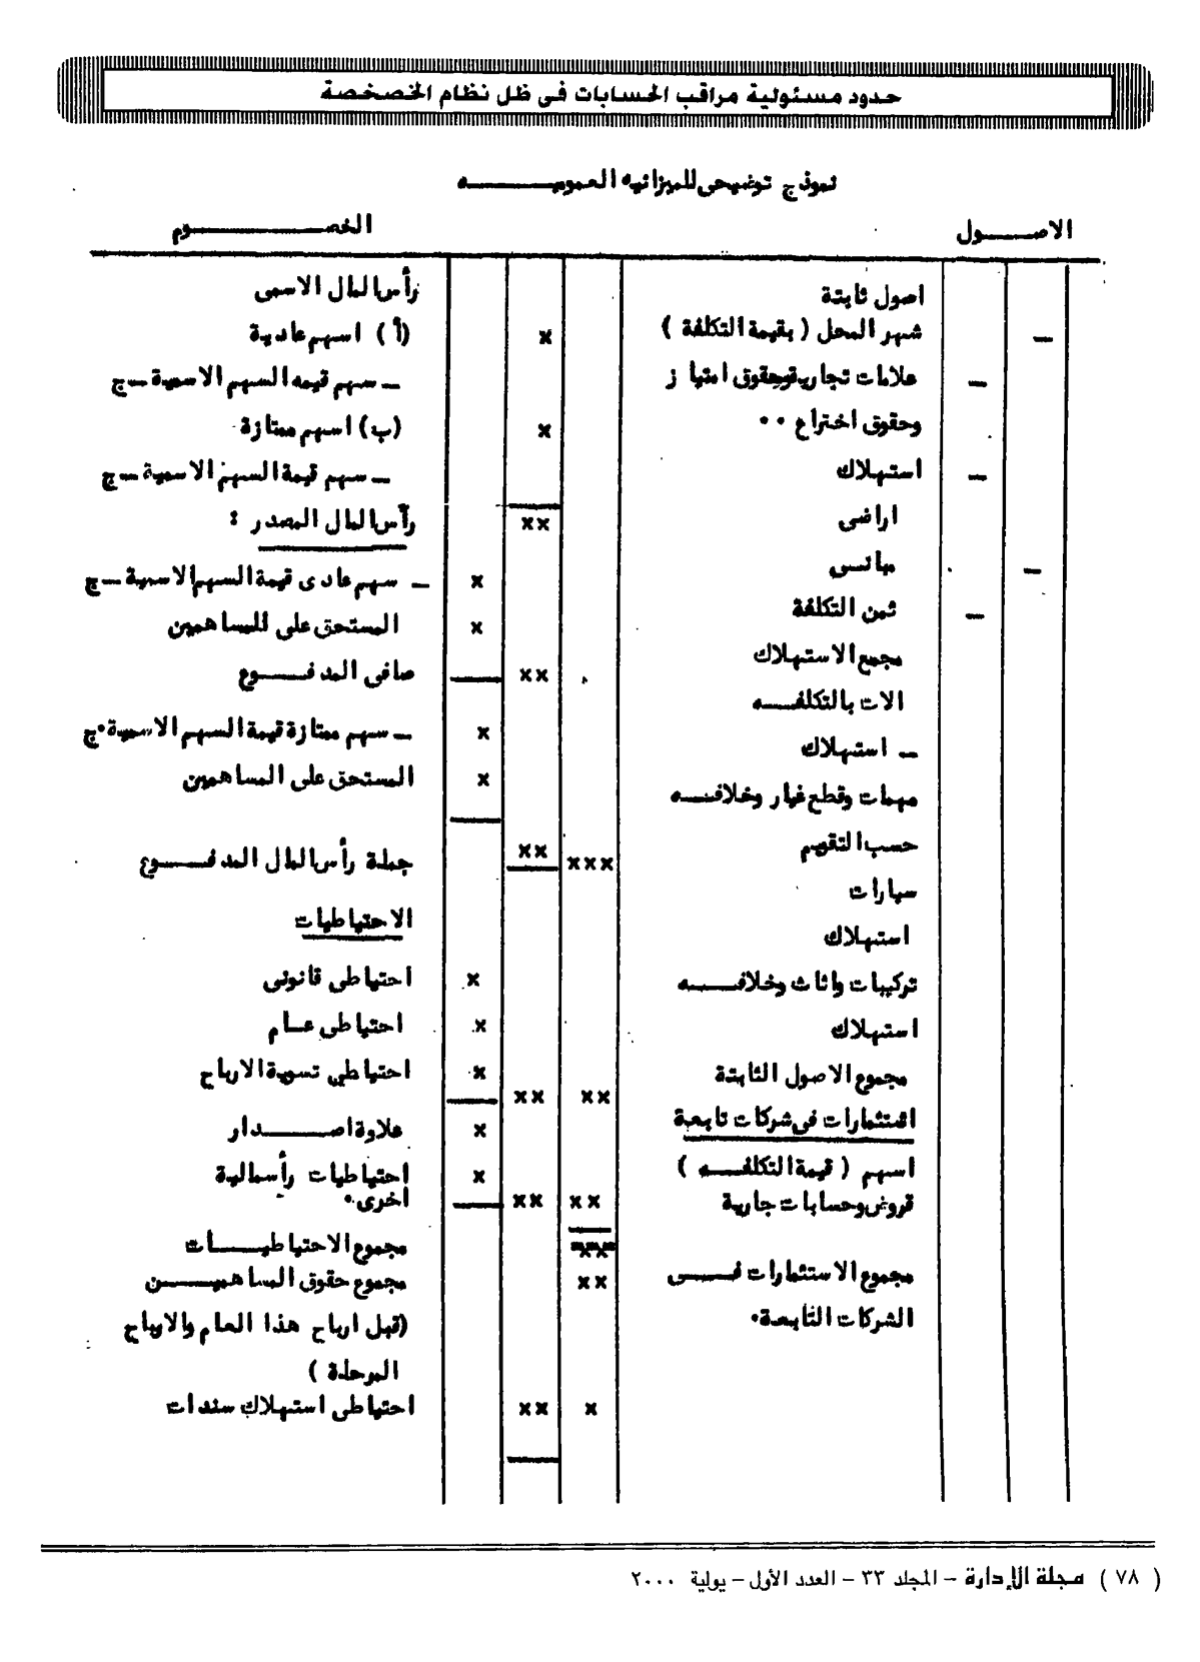 حدود مسئولية مراقب الحسابات فى ظل نظام الخصخصة
نموذج توضيحى للميزانيه العموميـــــه
الاصـــــول
اصول ثابتة
شهر المحل ( بقيمة التكلفة )
—
علامات تجارية وحقوق امتيا ز
—
وحقوق اختراع ٠٠
استهلاك
—
اراضى
مبانــى
—
ثمن التكلفة
—
مجمع الاستهلاك
الات بالتكلفـــه
— استهلاك
مهمات وقطع غيار وخلافـــه
حسب التقويم
سيارات
استهلاك
تركيبات واثاث وخلافـــه
استهلاك
مجموع الاصول الثابتة
استثمارات فى شركات تابعة
اسهم ( قيمة التكلفـــه )
قروض وحسابات جارية
مجموع الاستثمارات فـــى
الشركات التابعة٠
الخصـــــــوم
رأس المال الاسمى
(أ ) اسهم عادية
x
— سهم قيمه السهم الاسمية — ج
(ب) اسهم ممتازة
x
— سهم قيمة السهم الاسمية — ج
xx
رأس المال المصدر :
— سهم عادى قيمة السهم الاسمية — ج
x
المستحق على للمساهمين
x
صافى المدفـــوع
xx
— سهم ممتازة قيمة السهم الاسمية٠ج
x
المستحق على المساهمين
x
xx
جملة رأس المال المدفـــوع
xxx
الاحتياطيات
احتياطى قانونى
x
احتياطى عــام
x
احتياطى تسوية الارباح
x xx xx
علاوة اصـــــدار
x
احتياطيات رأسمالية
x
اخرى٠
xx xx
مجموع الاحتياطيـــات
xxx
مجموع حقوق المساهميـــن
xx
(قبل ارباح هذا العام والارباح
المرحلة )
احتياطى استهلاك سندات
xx x
( ٧٨ ) مجلة الإدارة – المجلد ٣٣ – العدد الأول – يولية ٢٠٠٠